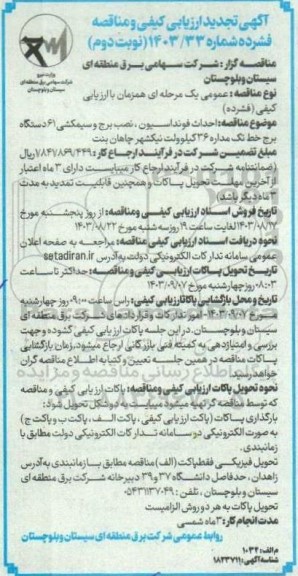 آگهی تجدید ارزیابی کیفی و مناقصه
فشرده شماره ۱۴۰۳/۳۳ (نوبت دوم)
وزارت نیرو
شرکت سهامی برق منطقه ای
سیستان و بلوچستان
مناقصه گزار: شرکت سهامی برق منطقه ای
سیستان وبلوچستان
نوع مناقصه: عمومی یک مرحله ای همزمان با ارزیابی
کیفی (فشرده)
موضوع مناقصه: احداث فونداسیون ، نصب برج و سیمکشی ۶۱ دستگاه
برج خط تک مداره ۶۳ کیلوولت نیکشهر چاهان بنت
مبلغ تضمین شرکت در فرآیند ارجاع کار: ۷۸۴۷۸۶۹/۴۴۹ ریال
(ضمانتنامه شرکت در فرآیند ارجاع کار میبایست دارای ۳ ماه اعتبار
از آخرین مهلت تحویل پاکات و همچنین قابلیت تمدید به مدت
۳ ماه دیگر باشد)
تاریخ فروش اسناد ارزیابی کیفی ومناقصه: از روز پنجشنبه مورخ
۱۴۰۳/۰۸/۱۷ لغایت ساعت ۱۹ روز سه شنبه مورخ ۱۴۰۳/۰۸/۲۲
نحوه دریافت اسناد ارزیابی کیفی مناقصه: مراجعه به صفحه اعلان
عمومی سامانه تدارکات الکترونیکی دولت به آدرس setadiran.ir
تاریخ تحویل پاکات ارزیابی کیفی ومناقصه: حداکثر تا ساعت
۰۸:۰۳ روز چهارشنبه مورخ ۱۴۰۳/۰۹/۰۷
تاریخ و محل بازگشایی پاکات ارزیابی کیفی: راس ساعت ۰۹:۰۰ روز چهارشنبه
مورخ ۱۴۰۳/۰۹/۰۷ - امور تدارکات و قراردادهای شرکت برق منطقه ای
سیستان و بلوچستان. در این جلسه پاکات ارزیابی کیفی گشوده و جهت
بررسی و امتیازدهی به کمیته فنی بازرگانی ارجاع میشود، زمان بازگشایی
پاکات مناقصه در همین جلسه تعیین و کتبا به اطلاع مناقصه گران
خواهد رسید
نحوه تحویل پاکات ارزیابی کیفی ومناقصه: پاکات ارزیابی کیفی و مناقصه
که توسط مناقصه گر تهیه میشود میبایست به دو شکل تحویل شود:
بارگذاری پاکات (پاکت ارزیابی کیفی ، پاکت الف ، پاکت ب و پاکت ج)
به صورت الکترونیکی در سامانه تدارکات الکترونیکی دولت مطابق با
زمانبندی.
تحویل فیزیکی فقط پاکت (الف) مناقصه مطابق با زمانبندی به آدرس
زاهدان ، حدفاصل دانشگاه ۳۷ و ۳۹ دبیرخانه شرکت برق منطقه ای
سیستان و بلوچستان ، تلفن : ۰۵۴۳۱۱۳۷۰۴۹
تحویل پاکات به هر دو روش الزامیست
مدت انجام کار: ۳ ماه شمسی
روابط عمومی شرکت برق منطقه ای سیستان و بلوچستان
م الف: ۱۰۳۲
شناسه آگهی: ۱۸۲۳۷۱۱